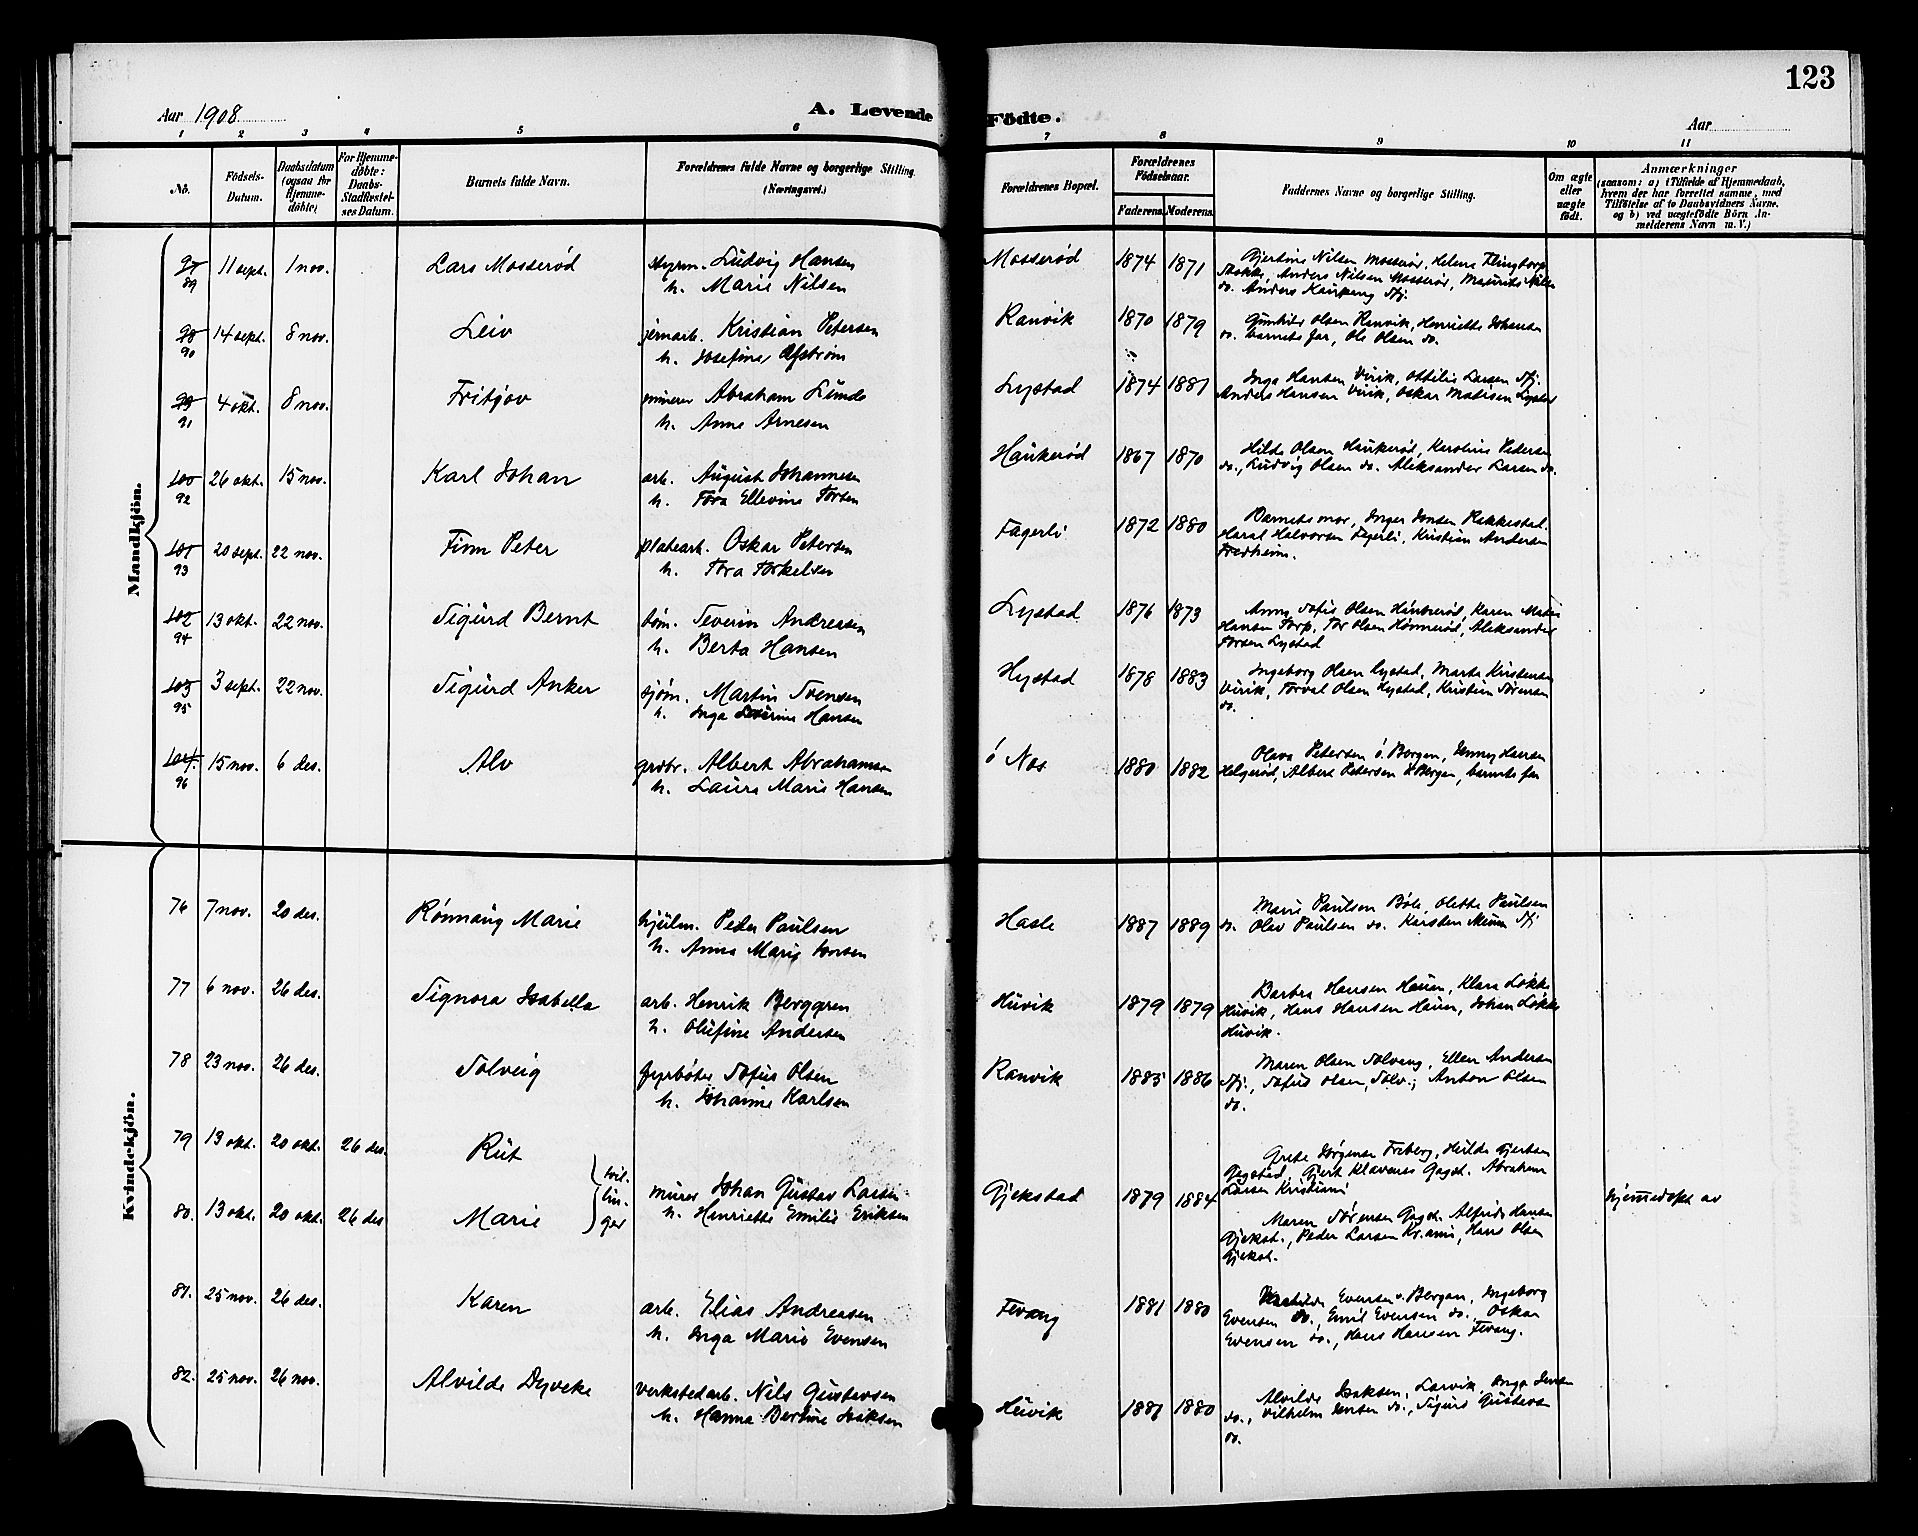 123
Aar 1908
A. Levende Födte.
Aar
1 2 3 4 5 6 7 8 9 10 11
No.
Födsels-Datum.
Daabsdatum (ogsaa for Hjemme-döbte)
For Hjemme-döbte: Daabs-Stadfæstel-ses Datum.
Barnets fulde Navn.
Forældrenes fulde Navne og borgerlige Stilling. (Næringsvei.)
Forældrenes Bopæl.
Forældrenes Födselsaar.
Faderens. Moderens.
Faddernes Navne og borgerlige Stilling.
Om ægte eller uægte födt.
Anmærkninger
(saasom: a) i Tilfælde af Hjemmedaab, hvem der har forrettet samme, med Tilföielse af to Daabsvidners Navne. og b) ved uægtefödte Börn An-melderens Navn m. V.)
Mandkjön.
97 11 sept. 1 nov. Lars Mosserød styrm. Ludvig Hansen Mosserød 1874 1871 Gjertine Nilsen Mosserød, Helene
89 h. Marie Nilsen Anders Nilsen Mosserød, Maurits Nilsen
do. Anders Kaupang Sfj.
98 14 sept. 8 nov. Leiv jernarb. Kristian Petersen Ranvik 1870 1879 Gunhild Olsen Ranvik, Henriette Johansen
90 h. Josefine Ofström do. barnets far, Ole Olsen do.
99 4 okt. 8 nov. Fritjov minerer Abraham Lunde Lystad 1874 1881 Inga Hansen Virik, Ottilie Larsen Sfj.
91 h. Anne Arnesen Anders Hansen Virik, Oskar Matisen Lystad
100 26 okt. 15 nov. Karl Johan arb. August Johannesen Haukerød 1867 1870 Hilda Olsen Haukerød, Karoline Pedersen
92 h. Tora Ellevine do., Ludvig Olsen do. Aleksander Larsen do.
101 20 sept. 22 nov. Finn Peter platearb. Oskar Petersen Fagerli 1872 1880 Barnets mor, Inger Jensen Rakkestad.
93 h. Tora Torkelsen Haral Halvorsen Fagerli, Kristian Andersen
Fredheim.
102 13 okt. 22 nov. Sigurd Bernt tøm. Severin Andreasen Lystad 1876 1873 Anna Sofie Olsen Haukerød, Karen
94 h. Berta Hansen Hansen Torp, Tor Olsen Hønnerød, Aleksander
Lystad
103 3 sept. 22 nov. Sigurd Anker sjøm. Martin Svensen Hystad 1878 1883 Ingeborg Olsen Lystad, Marta Kristensen
95 h. Inga Severine Hansen Virik, Torval Olsen Hystad, Kristian Sørensen
do.
104. 15 nov. 6 des. Alv grdbr. Albert Abrahamsen ö Nes 1880 1882 Olava Petersen ö Borgen, Jenny Hansen
96 h. Laura Marie Hansen Helgerød, Albert Petersen ö Borgen, barnets far
Kvindekjön.
76 7 nov. 20 des. Rönnaug Marie hjulm. Peder Paulsen Hasle 1887 1889 Marie Paulsen Böle, Olette Paulsen
h. Anna Marie do. Olav Paulsen do. Karsten Sfj
77 6 nov. 26 des. Signora Isabella arb. Henrik Berggren Huvik 1879 1879 Barbra Hansen Haum, Klara Løkke
h. Olufine Andersen Huvik, Hans Hansen Haum, Johan Løkke
Huvik.
78 23 nov. 26 des. Solveig fyrbøter Sofus Olsen Ranvik 1885 1886 Maren Olsen Solvang, Ellen Andersen
h. Johanne Karlsen Sfj., Sofus Olsen, Solv.; Anton Olsen
do.
79 13 okt. 20 okt. 26 des. Rut tvil-lin-ger murer Johan Gustav Larsen Gjekstad 1879 1884 Grete Jørgensen Freberg, Hulda Gjertsen
Gogstad, Gjert Klavenes Gogst. Abraham
Larsen
80. 13 okt. 20 okt. 26 des Marie h. Henriette Emilie Eriksen Maren Sørensen Gogst. Alfrida Hansen hjemmedøpt av
Gjekst., Peder Larsen Hans Olsen
Gjekst.
81. 25 nov. 26 des. Karen arb. Elias Andreasen Fevang 1881 1880 Evensen v. Bergan, Ingeborg
h. Inga Marie Evensen Evensen do., Emil Evensen do. Oskar
Evensen do., Hans Hansen Fevang.
82. 25 nov. 26 nov. Alvilde Dyveke verkstedarb. Nils Gustavsen Huvik 1881 1880 Alvilde Isaksen, Larvik, Inga Jensen
h. Hanna Bertine Isaksen do., Vilhelm Jensen do., Sigurd Gustavsen
do.